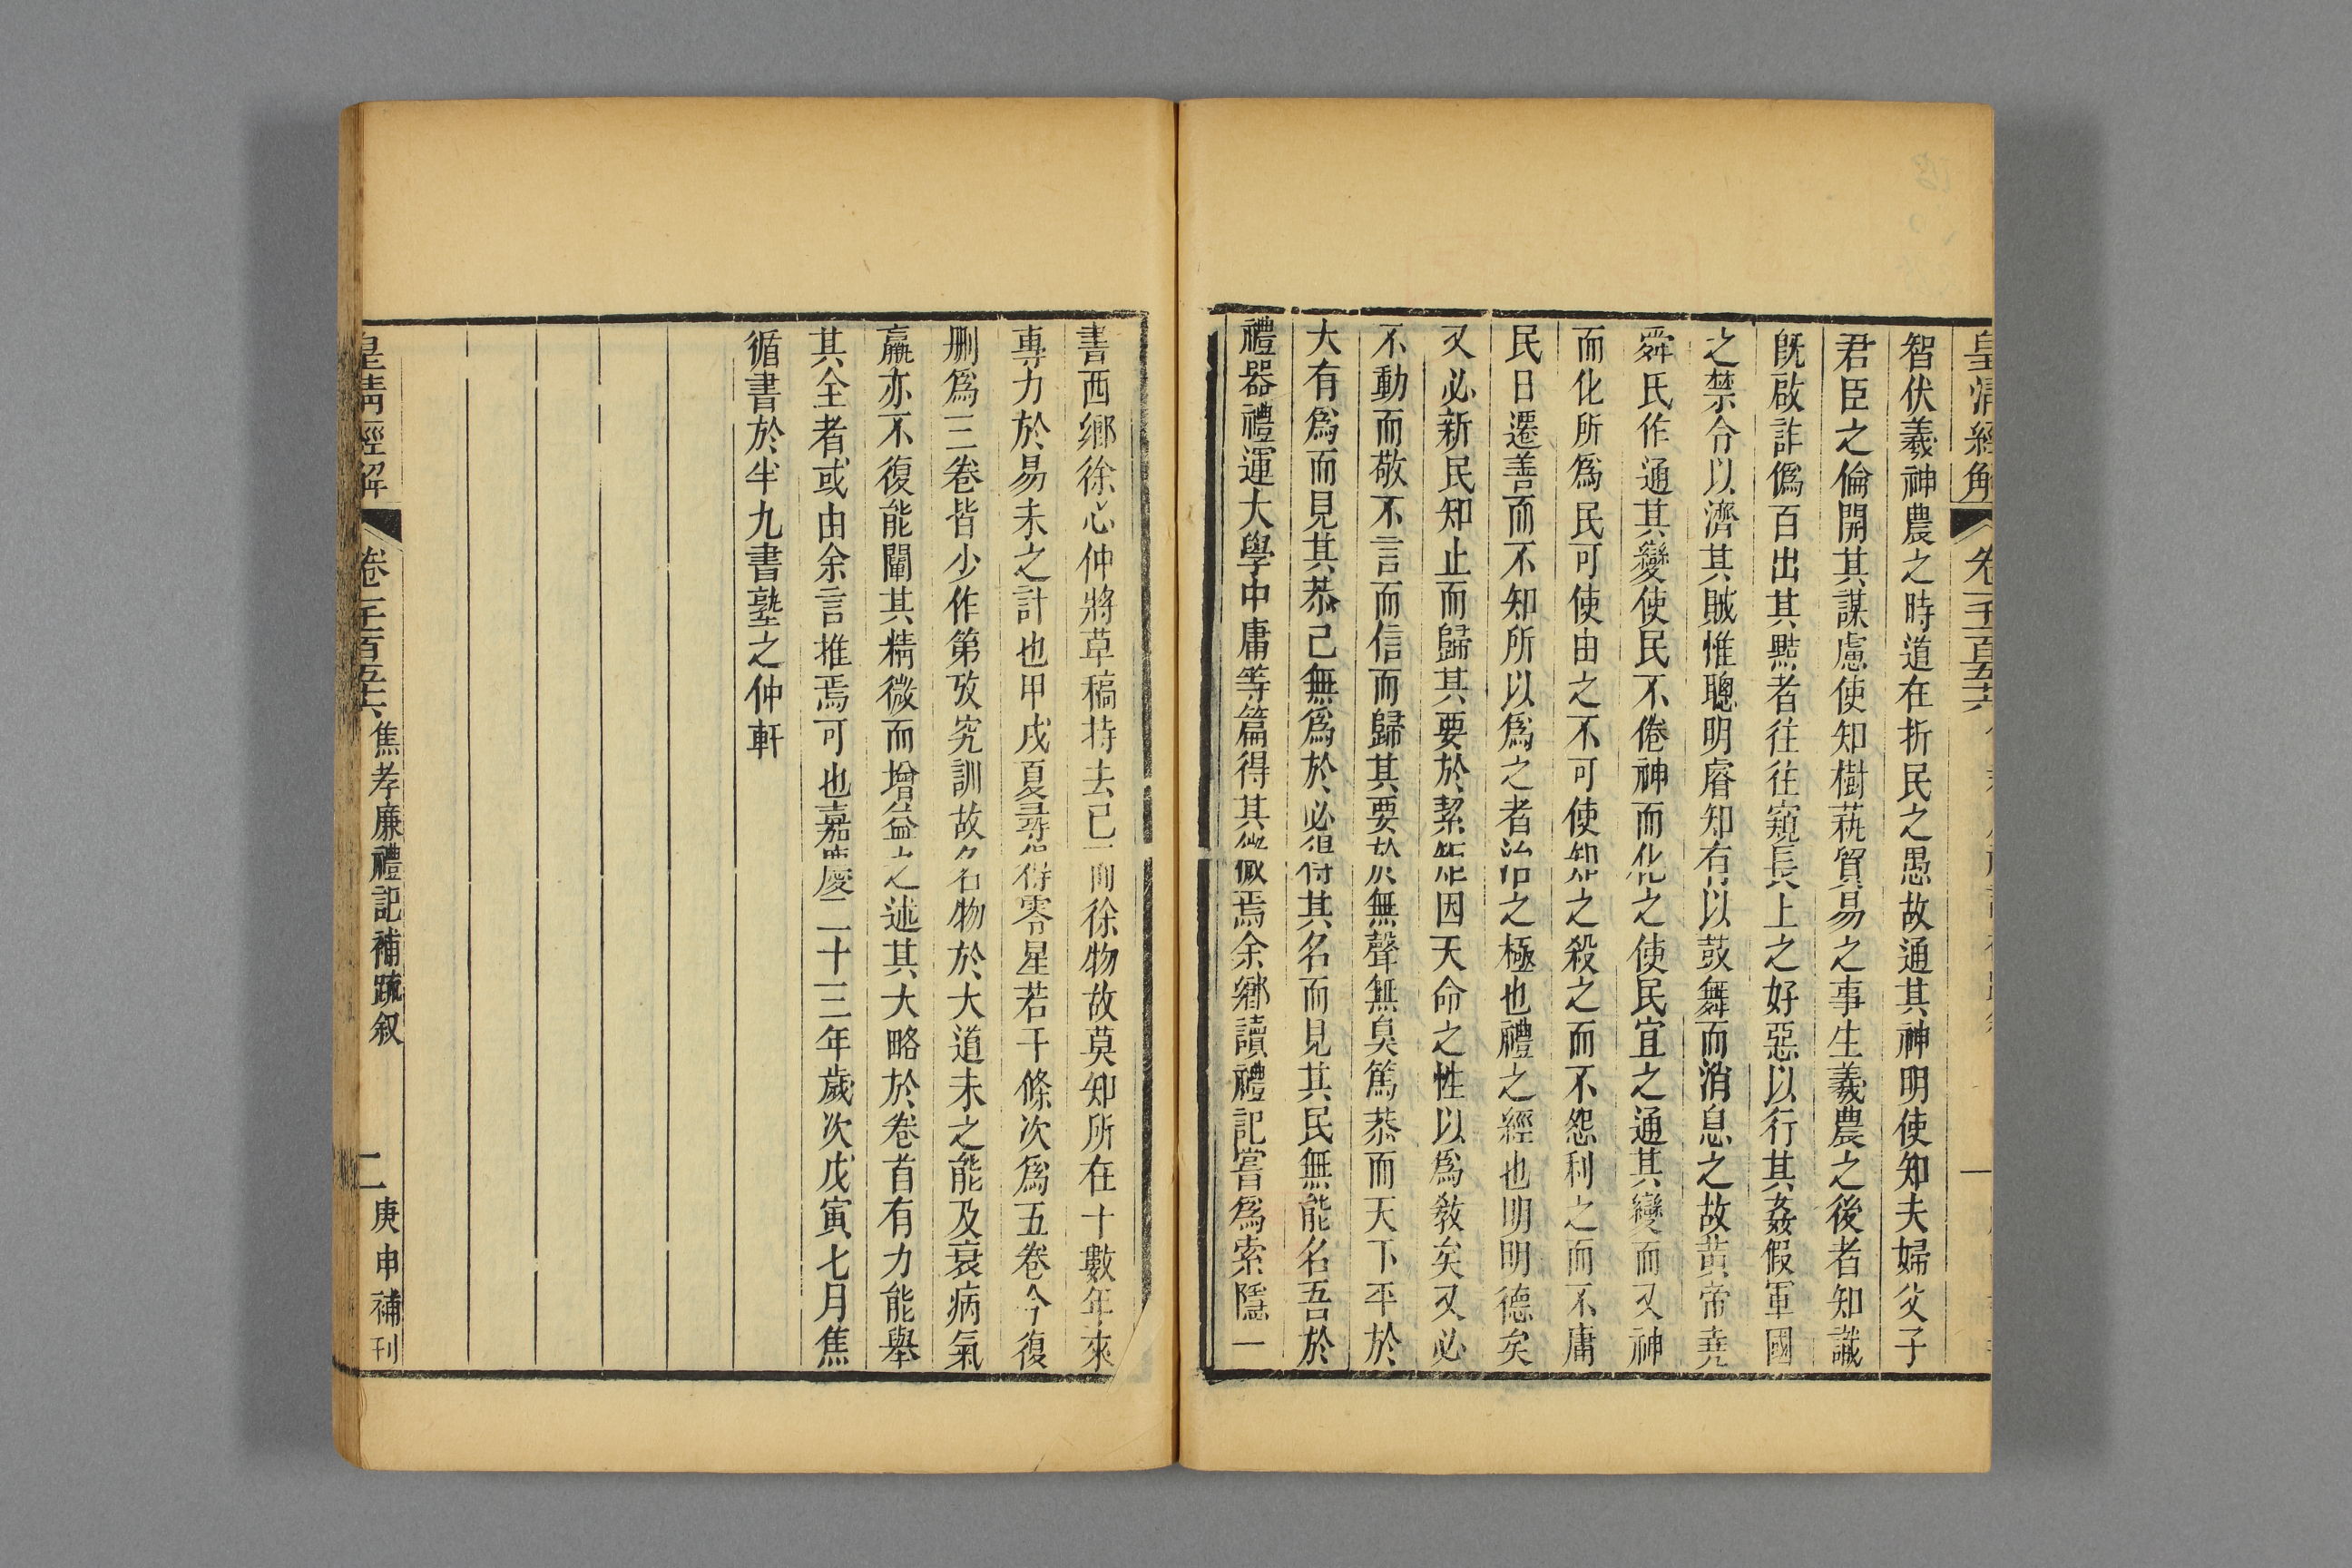 皇清經解
卷一千一百五十六
一
智伏羲神農之時道在折民之愚故通其神明使知夫婦父子
君臣之倫開其謀慮使知樹蓺貿易之事生羲農之後者知識
旣啟詐僞百出其黠者往往窺長上之好惡以行其姦假軍國
之禁令以濟其賊惟聰明睿知有以鼓舞而消息之故黃帝堯
舜氏作通其變使民不倦神而化之使民宜之通其變而又神
而化所爲民可使由之不可使知之殺之而不怨利之而不庸
民日遷善而不知所以爲之者治之極也禮之經也明明德矣
又必新民知止而歸其要於絜矩因天命之性以爲敎矣又必
不動而敬不言而信而歸其要於無聲無臭篤恭而天下平於
大有爲而見其恭己無爲於必得其名而見其民無能名吾於
禮器禮運大學中庸等篇得其微焉余鄉讀禮記嘗爲索隱一
書西鄉徐心仲將草稿持去已而徐物故莫知所在十數年來
專力於易未之計也甲戌夏尋得零星若干條次爲五卷今復
刪爲三卷皆少作第攷究訓故名物於大道未之能及衰病氣
羸亦不復能闡其精微而增益之述其大略於卷首有力能舉
其全者或由余言推焉可也嘉慶二十三年歲次戊寅七月焦
循書於半九書塾之仲軒
皇清經解
卷一千一百五十六
焦孝廉禮記補疏叙
二
庚申補刊